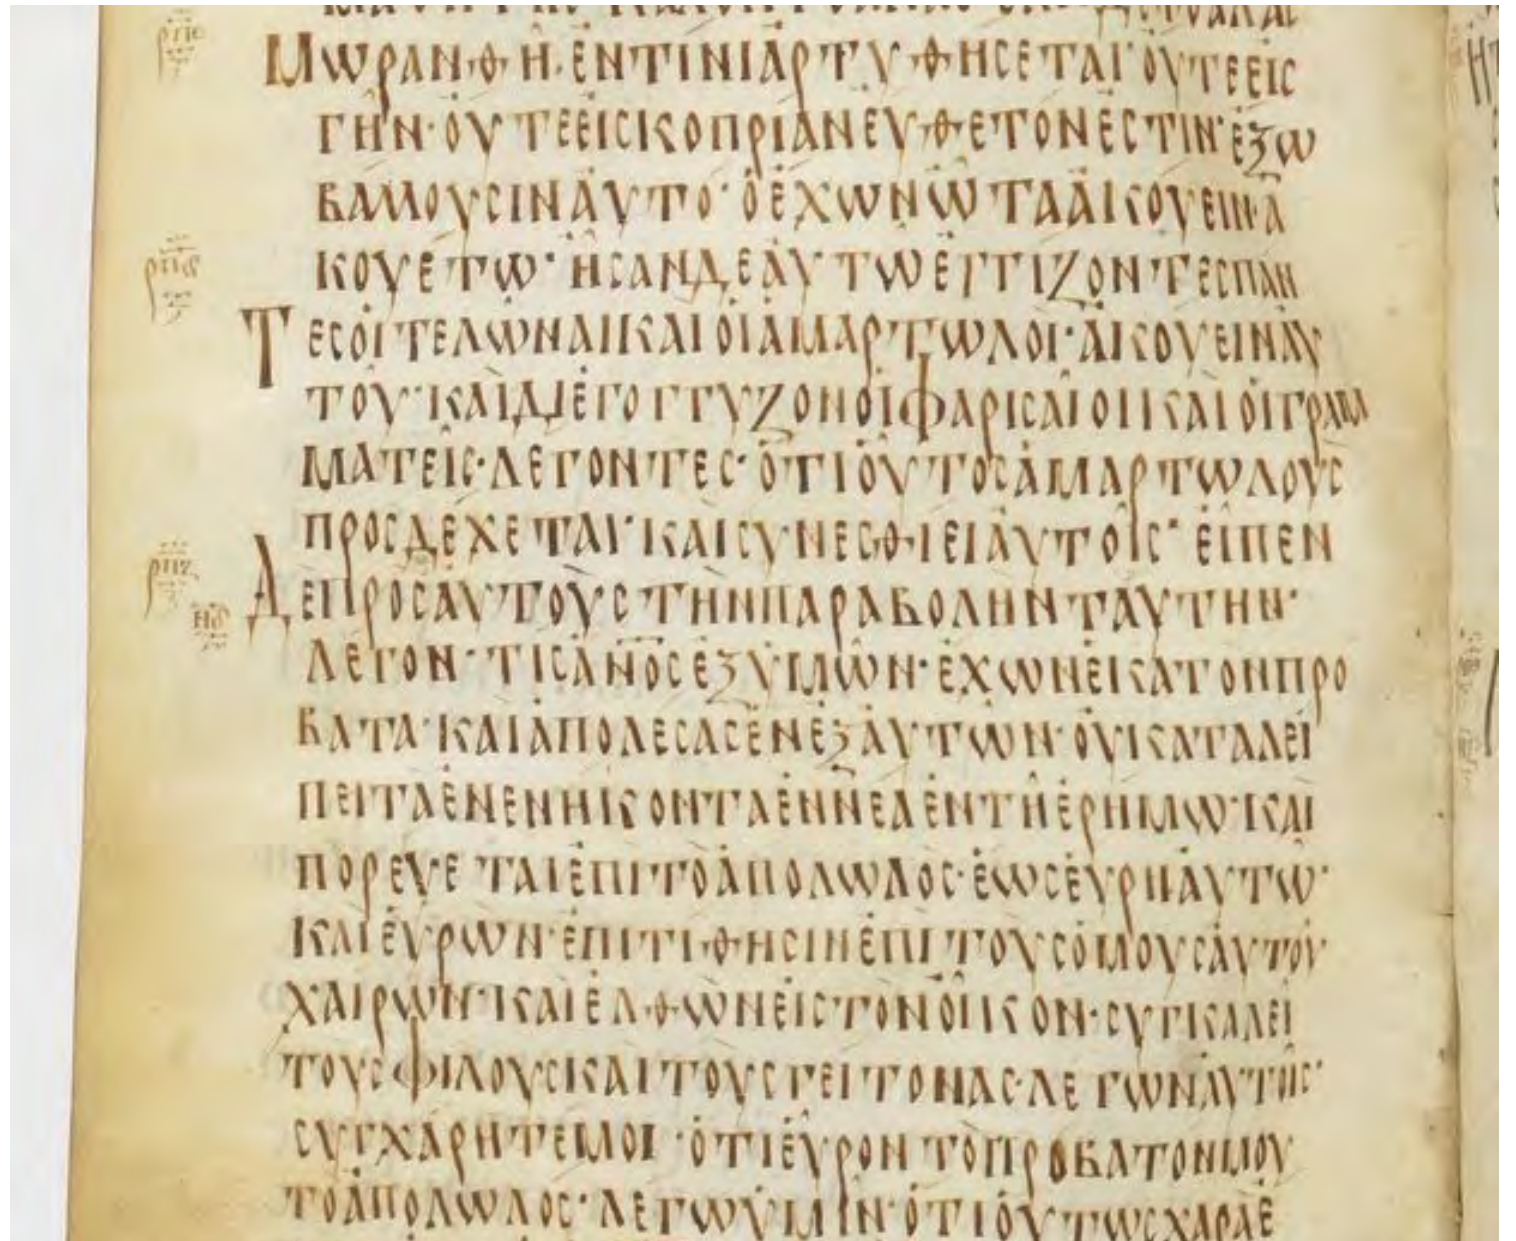 ΜΩΡΑΝΘΗ·ΕΝΤΙΝΙΑΡΤΥΘΗΣΕΤΑΙ·ΟΥΤΕΕΙC
ΓΗΝ·ΟΥΤΕΕΙCΚΟΠΡΙΑΝΕΥΘΕΤΟΝΕCΤΙΝ·ΕΞΩ
ΒΑΛΛΟΥCΙΝΑΥΤΟ·ΟΕΧΩΝΩΤΑΑΚΟΥΕΙΝ·Α
ΚΟΥΕΤΩ·ΗCΑΝΔΕΑΥΤΩΕΓΓΙΖΟΝΤΕCΠΑΝ
ΤΕCΟΙΤΕΛΩΝΑΙΚΑΙΟΙΑΜΑΡΤΩΛΟΙ·ΑΚΟΥΕΙΝΑΥ
ΤΟΥ·ΚΑΙΔΙΕΓΟΓΓΥΖΟΝΟΙΦΑΡΙCΑΙΟΙΚΑΙΟΙΓΡΑΜ
ΜΑΤΕΙC·ΛΕΓΟΝΤΕC·ΟΤΙΟΥΤΟCΑΜΑΡΤΩΛΟΥC
ΠΡΟCΔΕΧΕΤΑΙ·ΚΑΙCΥΝΕCΘΙΕΙΑΥΤΟΙC·ΕΙΠΕΝ
ΔΕΠΡΟCΑΥΤΟΥCΤΗΝΠΑΡΑΒΟΛΗΝΤΑΥΤΗΝ·
ΛΕΓΟΝ·ΤΙCΑΝΟCΕΞΥΜΩΝ·ΕΧΩΝΕΚΑΤΟΝΠΡΟ
ΒΑΤΑ·ΚΑΙΑΠΟΛΕCΑCΕΝΕΞΑΥΤΩΝ·ΟΥΚΑΤΑΛΕΙ
ΠΕΙΤΑΕΝΕΝΗΚΟΝΤΑΕΝΝΕΑΕΝΤΗΕΡΗΜΩ·ΚΑΙ
ΠΟΡΕΥΕΤΑΙΕΠΙΤΟΑΠΟΛΩΛΟC·ΕΩCΕΥΡΗΑΥΤΩ·
ΚΑΙΕΥΡΩΝ·ΕΠΙΤΙΘΗCΙΝΕΠΙΤΟΥCΟΜΟΥCΑΥΤΟΥ
ΧΑΙΡΩΝ·ΚΑΙΕΛΘΩΝΕΙCΤΟΝΟΙΚΟΝ·CΥΓΚΑΛΕΙ
ΤΟΥCΦΙΛΟΥCΚΑΙΤΟΥCΓΕΙΤΟΝΑC·ΛΕΓΩΝΑΥΤΟΙC·
CΥΓΧΑΡΗΤΕΜΟΙ·ΟΤΙΕΥΡΟΝΤΟΠΡΟΒΑΤΟΝΜΟΥ
ΤΟΑΠΟΛΩΛΟC·ΛΕΓΩΥΜΙΝ·ΟΤΙΟΥΤΩCΧΑΡΑΕ